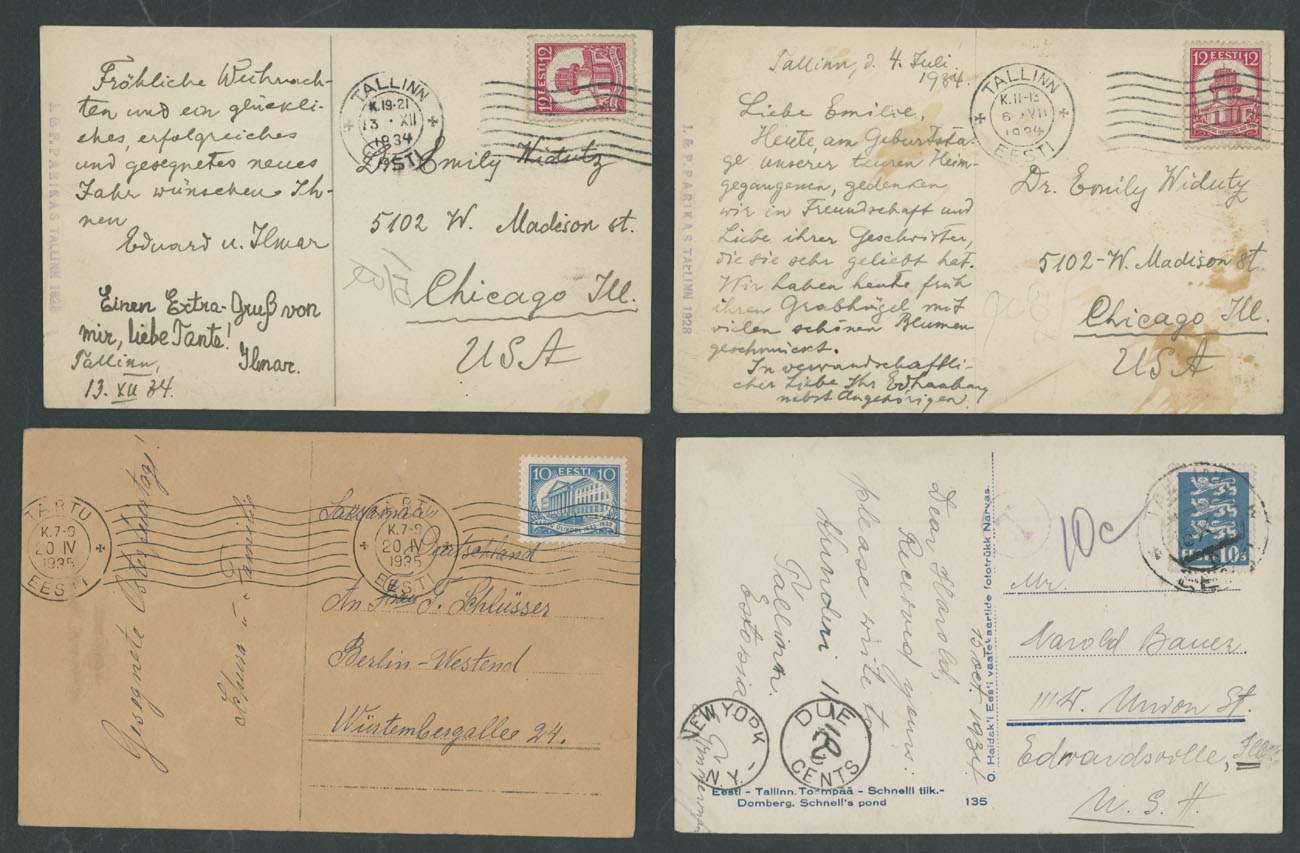 Fröhliche Weihnach-
ten und ein glückli-
ches, erfolgreiches
und gesegnetes neues
Jahr wünschen Ih-
nen
Eduard u. Ilmar
Einen Extra-Gruß von
mir, liebe Tante!
Ilmar.
Tallinn,
13. XII 34.
J. & P. PARIKAS TALLINN 1928
TALLINN
K.19-21
13 . XII
1934
EESTI
12 EESTI 12
Dr. Emily Widutz
5102 W. Madison st.
Chicago Ill.
USA
Tallinn, d. 4. Juli
1934.
Liebe Emilie,
Heute, am Geburtsta-
ge unserer teuren Heim-
gegangenen, gedenken
wir in Freundschaft und
Liebe ihrer Geschwister,
die sie sehr geliebt hat.
Wir haben heute früh
ihren Grabhügel mit
vielen schönen Blumen
geschmückt.
In verwandschaftli-
cher Liebe Ihr
nebst Angehörigen.
J. & P. PARIKAS TALLINN 1928
TALLINN
K.11-13
6 . VII
1934
EESTI
12 EESTI 12
Dr. Emily Widutz
5102-W. Madison st.
Chicago Ill.
USA
Gesegnete Ostern
Familie
TARTU
K.7-9
20 IV
1935
EESTI
TARTU
K.7-9
20 IV
1935
EESTI
10 EESTI 10
Deutschland
An Frau T. Schlüsser
Berlin-Westend
Würtembergallee 24.
Dear Harold,
Received yours:
please write to
Kunderi
Tallinn.
Estonia
15 Oct. 1934
10c
NEW YORK
N.Y.
DUE
CENTS
Eesti - Tallinn. Toompää - Schnelli tiik.-
Domberg. Schnell's pond
135
O. Haidak'i Eesti vaatekaartide fototrükk Narvas
EESTI 10 s
Mr.
Harold Bauer
111 W. Union St.
Edwardsville, Ill.
U.S.A.